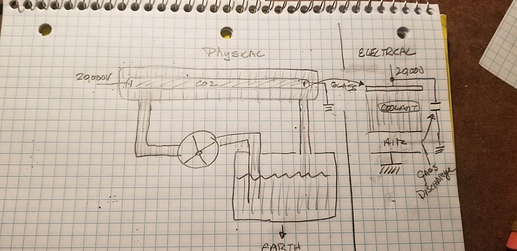 PHYSICAL
ELECTRICAL
20,000V
CO2
GLASS
20,000
COOLANT
GAS
DISCHARGE
EARTH